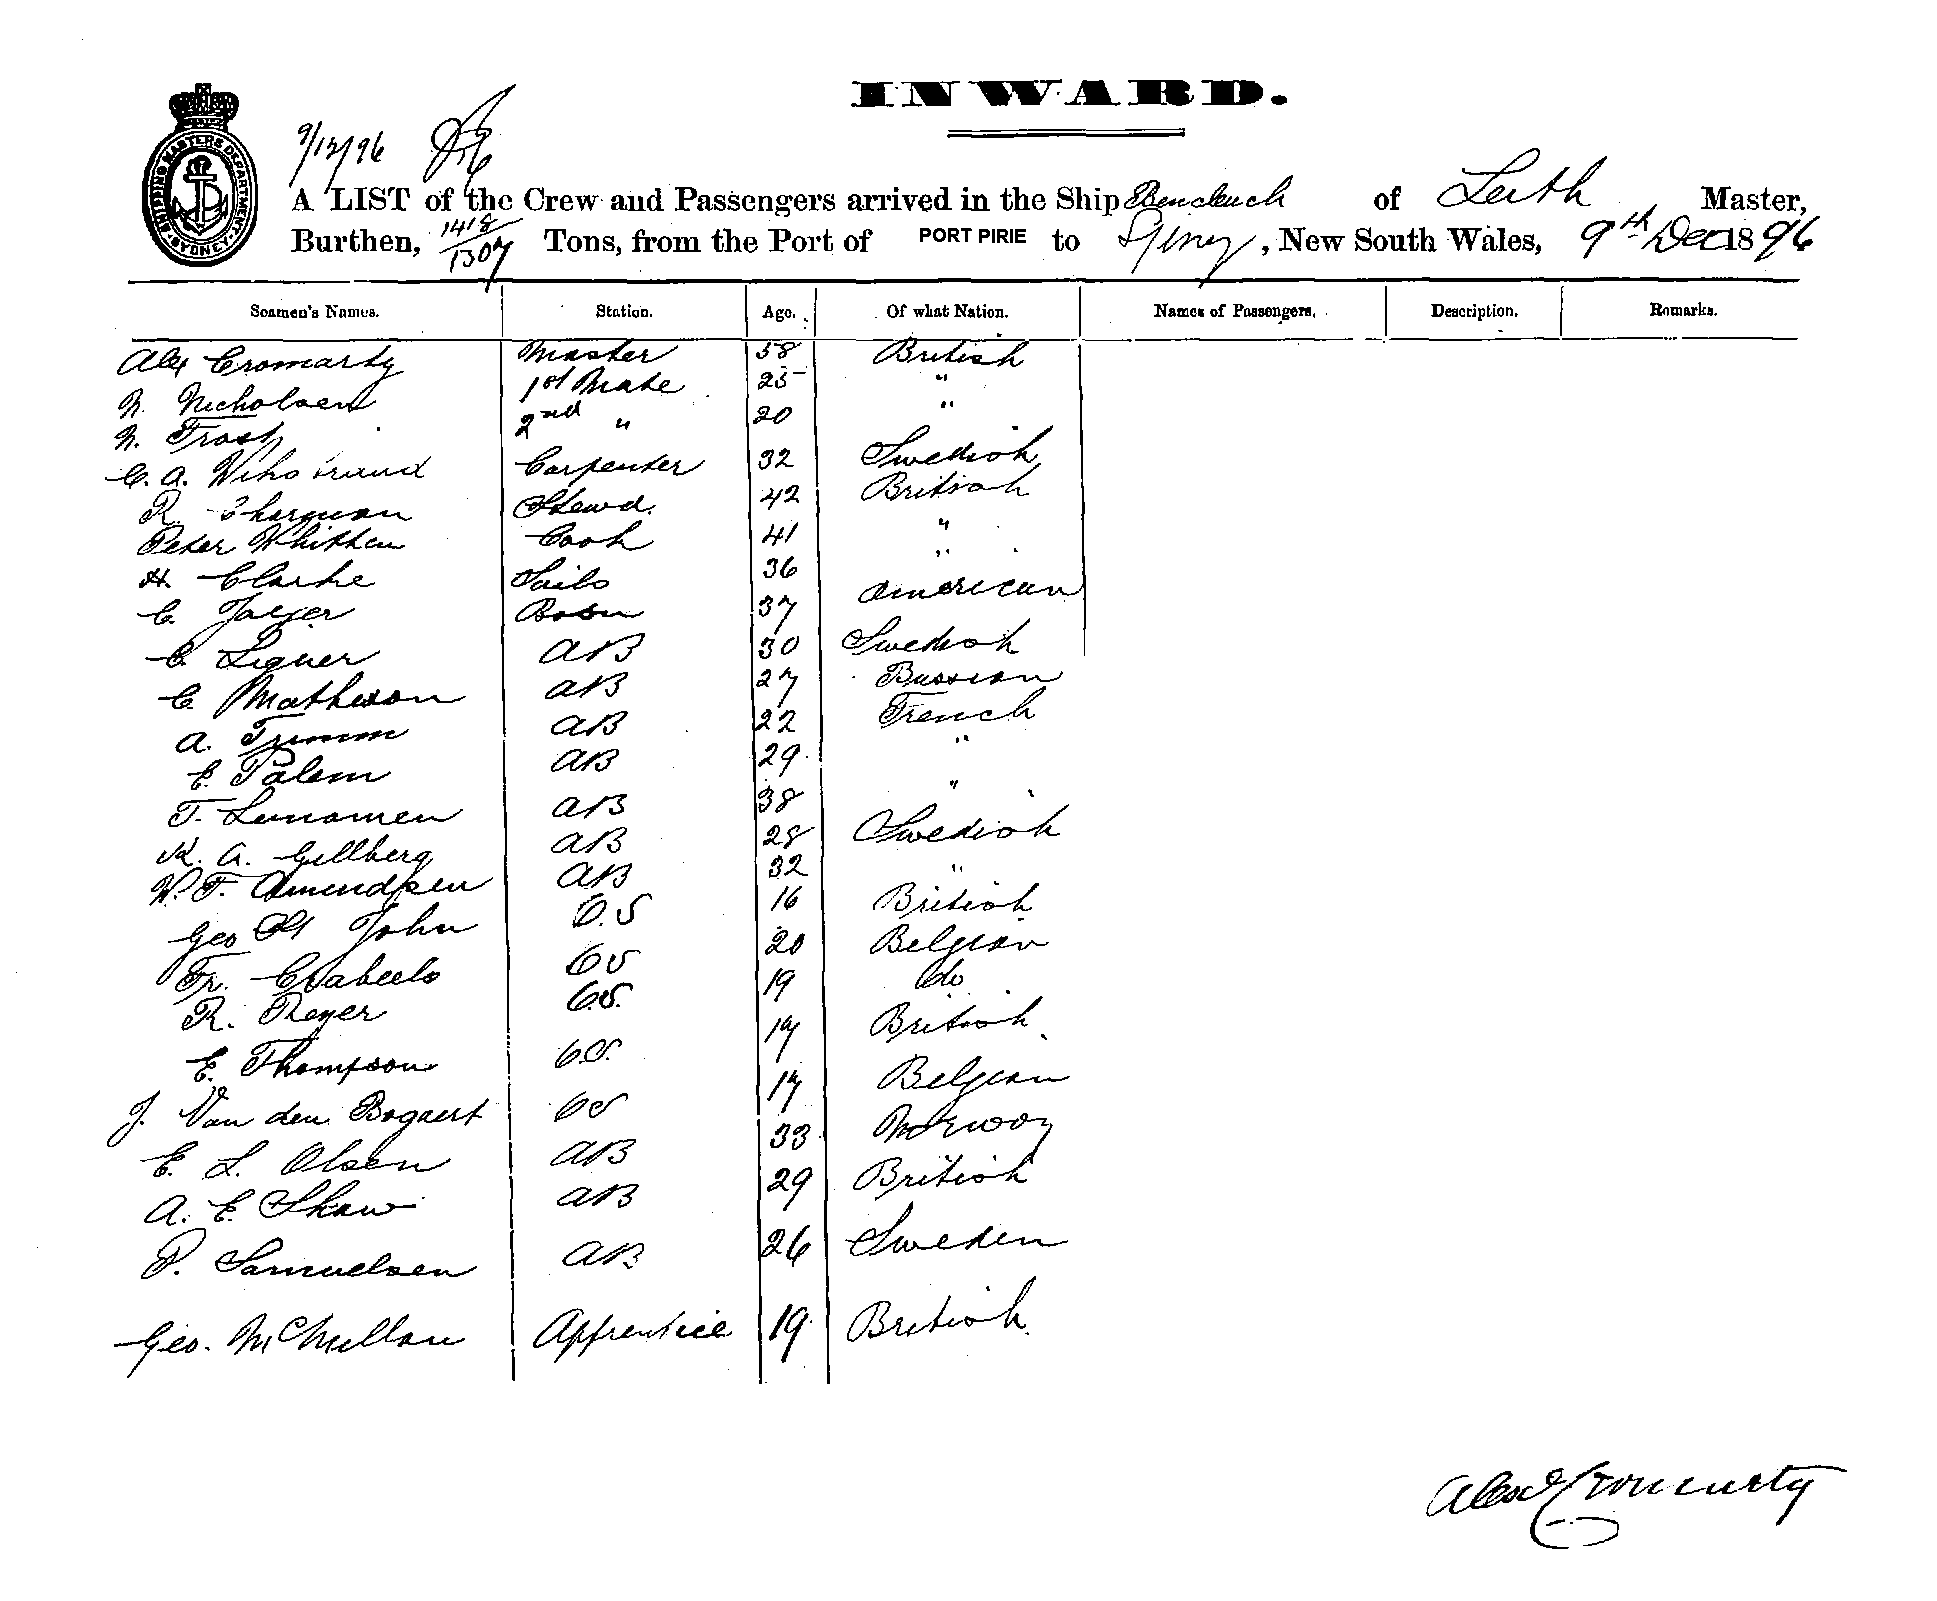 INWARD.
SHIPPING MASTERS DEPARTMENT SYDNEY
9/12/96
A LIST of the Crew and Passengers arrived in the Ship Bencleuch of Leith Master,
Burthen, 1418/1307 Tons, from the Port of PORT PIRIE to Sydney, New South Wales, 9th Dec 1896
Seamen's Names. Station. Age. Of what Nation. Names of Passengers. Description. Remarks.
Alex Cromarty Master 58 British
N. Nicholsen 1st Mate 25 "
N. Trost 2nd " 20 "
C. A. Carpenter 32 Swedish
R. Stewd. 42 British
Peter Whitten Cook 41 "
H. Clarke Sails 36 "
C. Jaeger Bosn 37 American
C. Ligner AB 30 Swedish
C. Matheson AB 27 Russian
A. Trimm AB 22 French
E. Palem AB 29 "
T. AB 38 "
K. A. Gellberg AB 28 Swedish
W. F. Amundsen AB 32 "
Geo St John O.S 16 British
Fr. Crabeels OS 20 Belgian
R. Reyer O.S. 19 do
E. Thompson O.S. 17 British
J. Van den Bogaert OS 17 Belgian
E. L. Olsen AB 33 Norway
A. E. Shaw AB 29 British
P. Samuelsen AB 26 Sweden
Geo. McMillan Apprentice 19 British
Alexr Cromarty